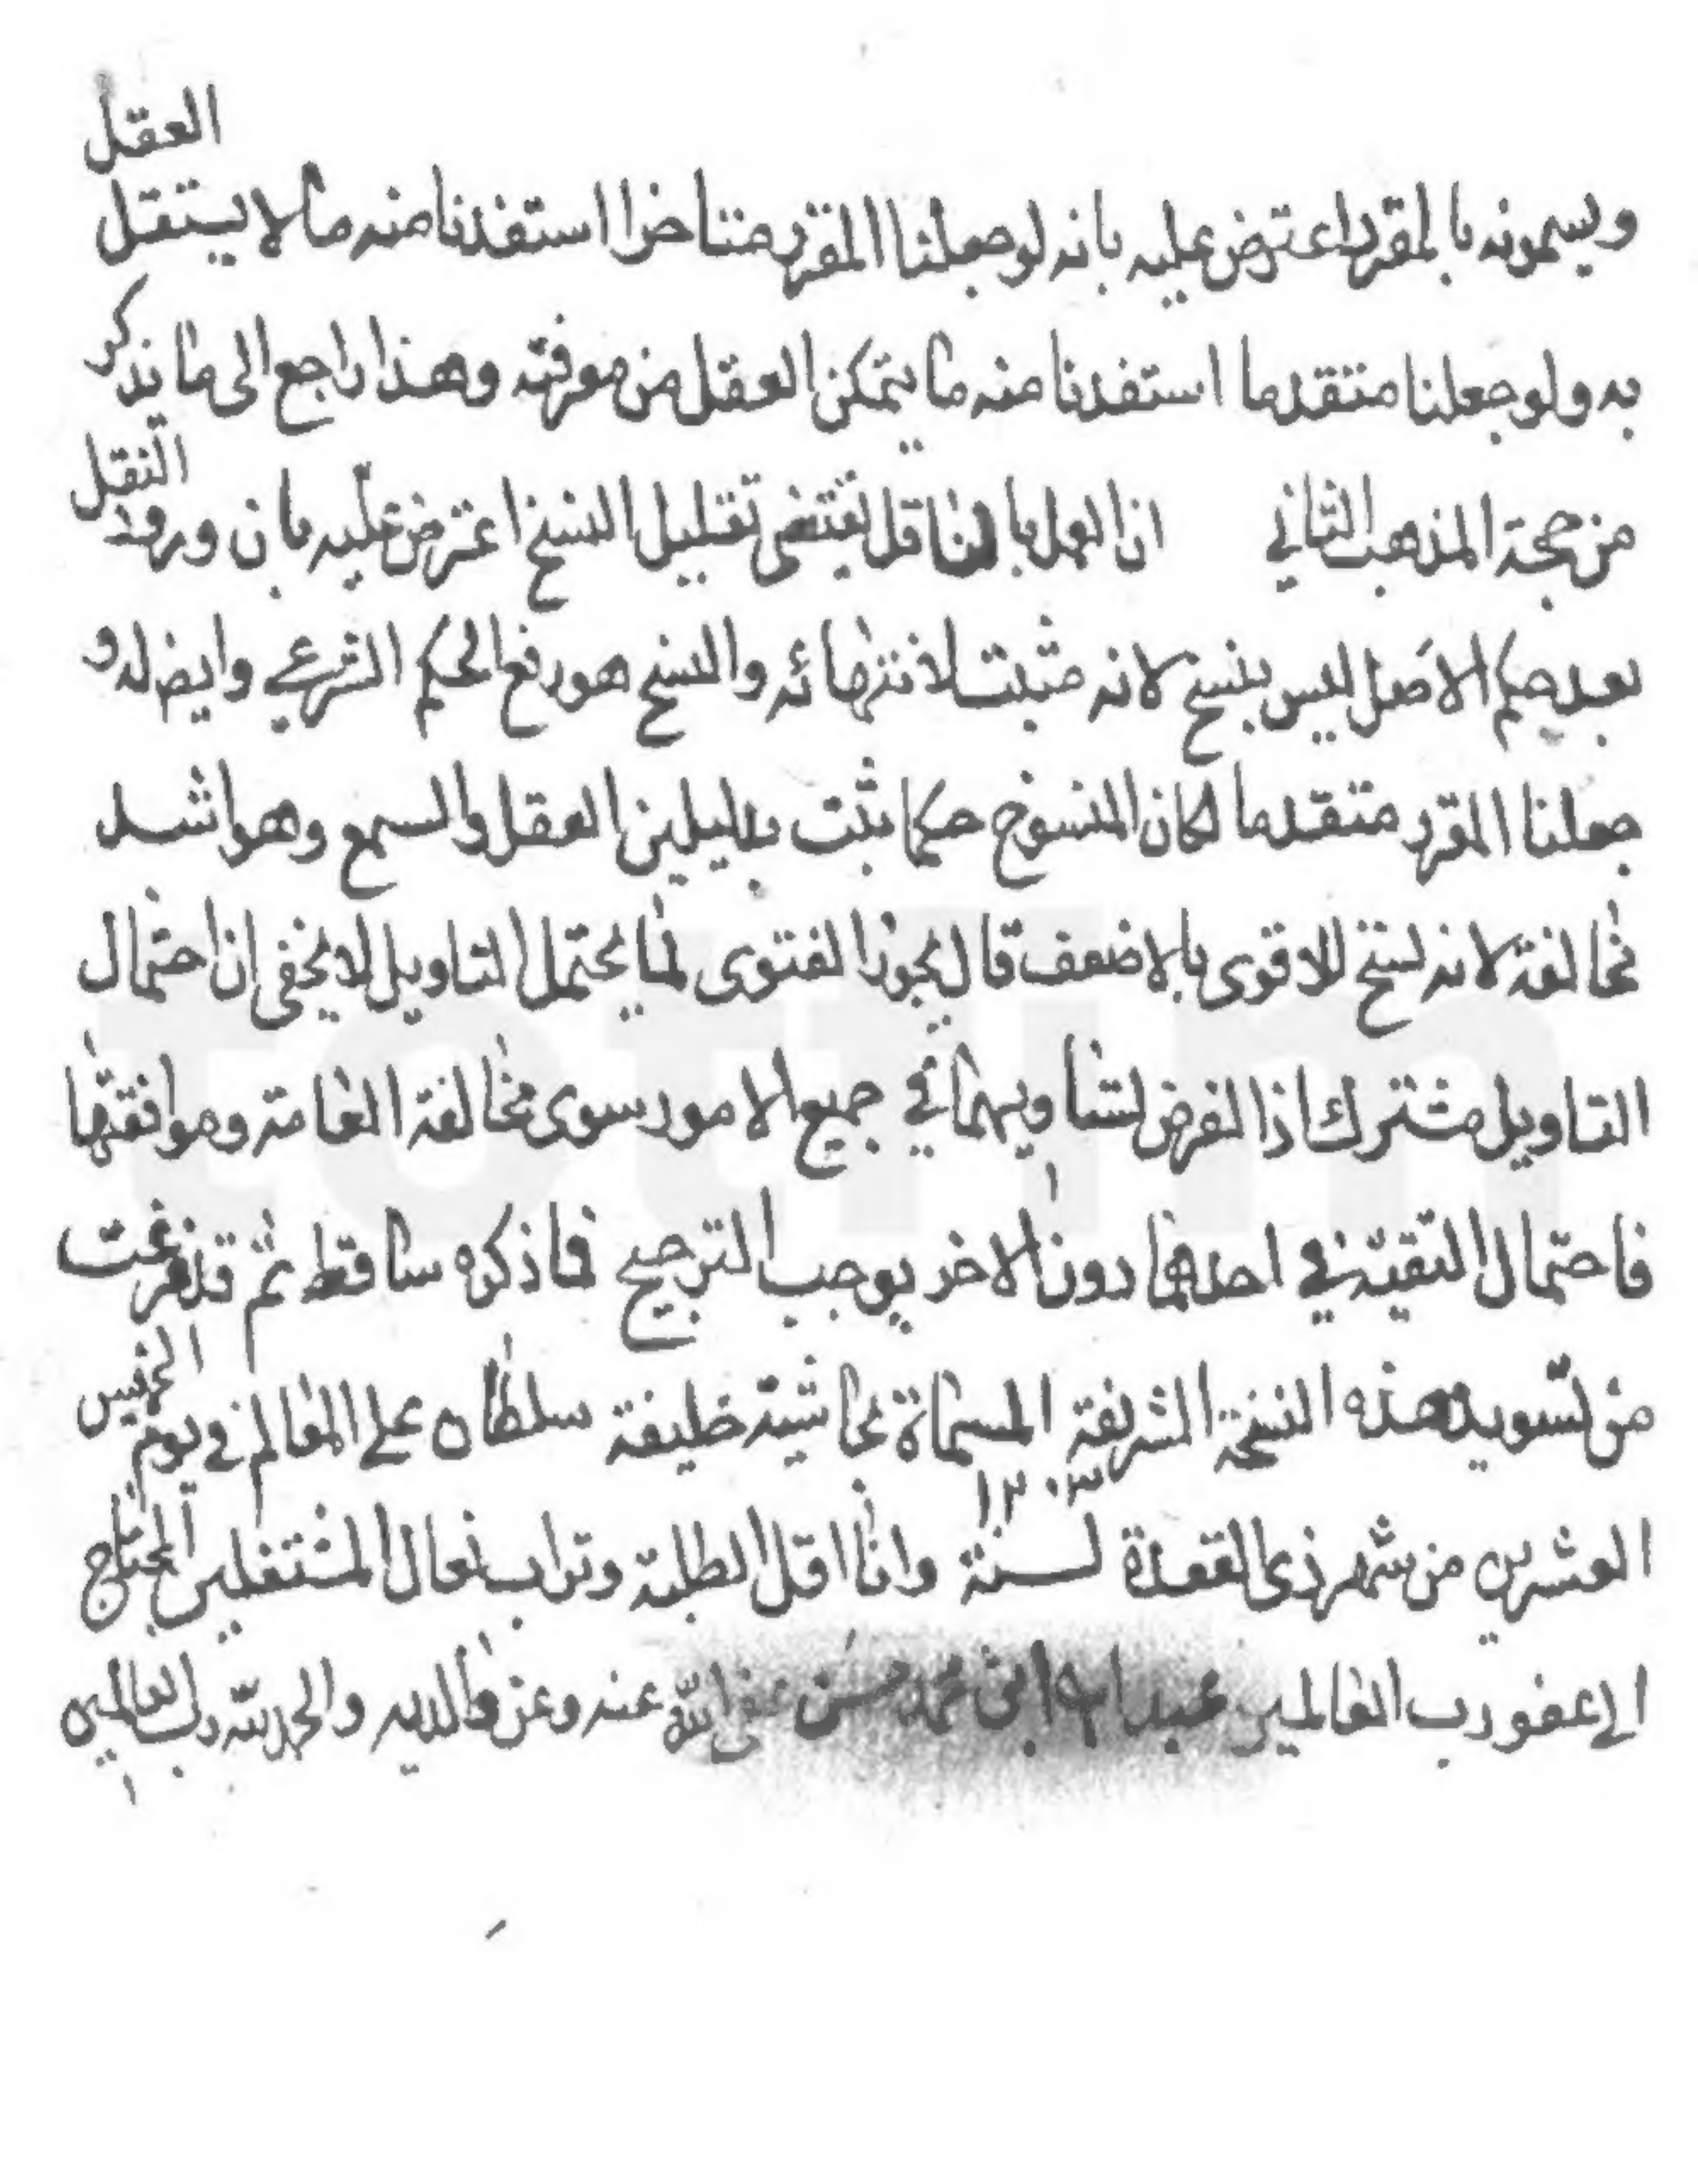 ويسمونه بالمقرر اعترض عليه بانه لو جعلنا المقرر متاخرا استفدنا منه ما لا يستقل العقل
به ولو جعلنا متقدما استفدنا منه ما يتمكن العقل من معرفته وهذا راجع الى ما نذكر
من حجة المذهب الثاني ان العمل بالناقل يقتضى تقليل النسخ اعترض عليه بان ورود النقل
بعد حكم الاصل ليس بنسخ لانه مثبت لانتهائه والنسخ هو رفع الحكم الشرعي وايض لو
جعلنا المقرر متقدما لكان المنسوخ حكما ثبت بدليلين العقل والسمع وهو اشد
مخالفة لانه نسخ للاقوى بالاضعف قال يجوز الفتوى لما يحتمل التاويل لا يخفى ان احتمال
التاويل مشترك اذا الفرض تساويهما في جميع الامور سوى مخالفة العامة وموافقتها
فاحتمال التقية في احدهما دون الاخر يوجب الترجيح فما ذكره ساقط ثم قد فرغت
من تسويد هذه النسخة الشريفة المسماة بحاشية خليفة سلطان على المعالم في يوم الخميس
العشرين من شهر ذى القعدة لسنة ١٢٠٣ وانا اقل الطلبة وتراب نعال المشتغلين المحتاج
الى عفو رب العالمين عبد الله ابن محمد حسن عفى الله عنه وعن والديه والحمد لله رب العالمين